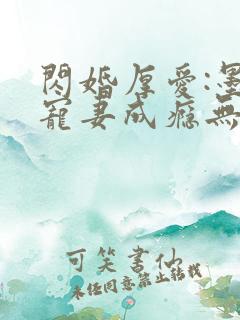 閃婚厚愛:墨
寵妻成癮無
可笑書仙
未經同意禁止轉載